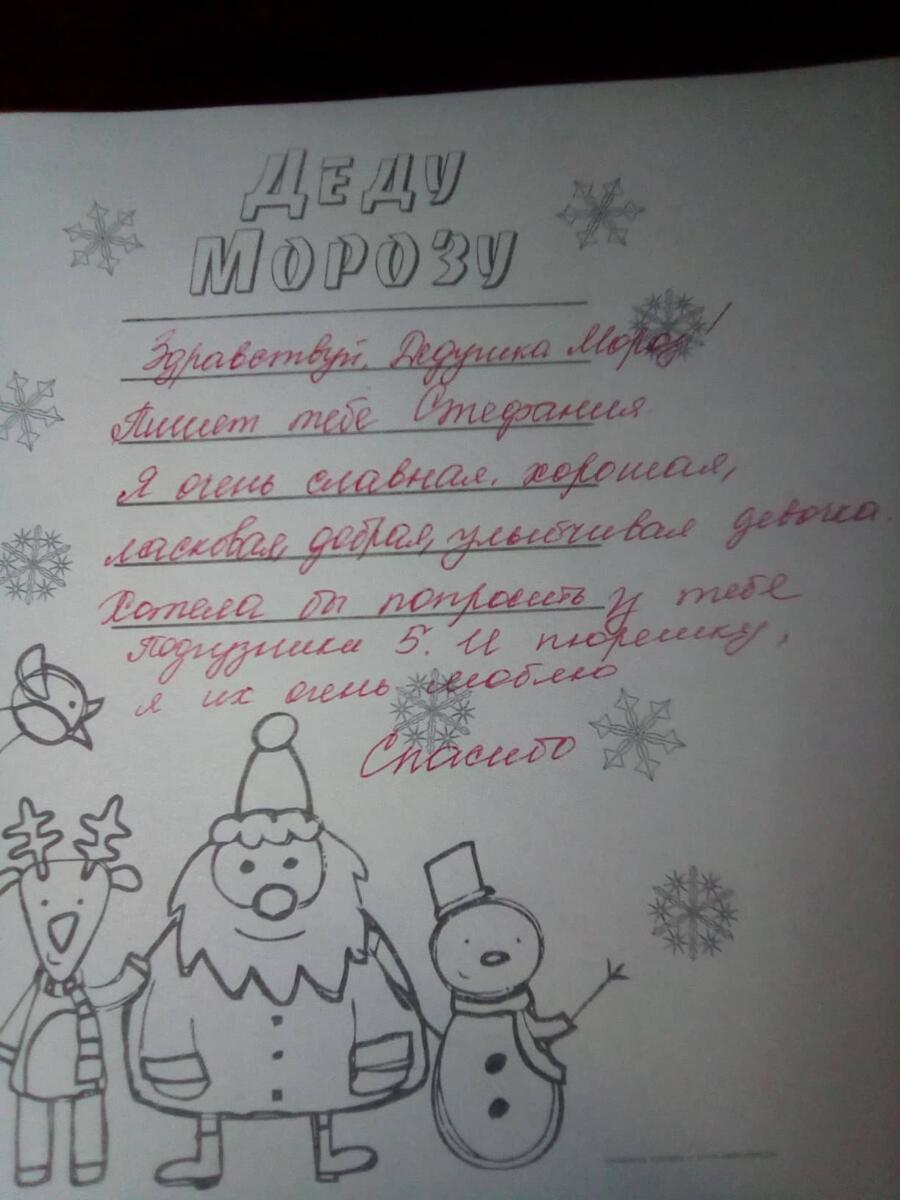 ДЕДУ
МОРОЗУ
Здравствуй, Дедушка Мороз!
Пишет тебе Стефания
Я очень славная, хорошая,
ласковая, добрая, улыбчивая девочка.
Хотела бы попросить у тебя
Подгузники 5. И пюрешку,
я их очень люблю
Спасибо